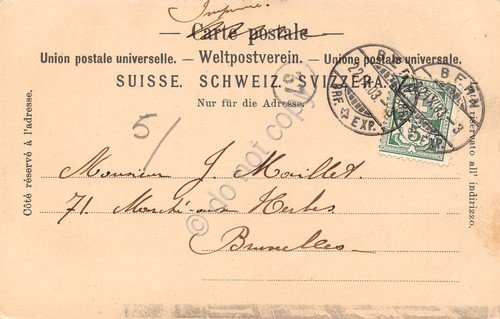 Imprimé
Carte postale
Union postale universelle. – Weltpostverein. – Unione postale universale.
SUISSE. SCHWEIZ. SVIZZERA.
Nur für die Adresse.
Côté réservé à l'adresse.
5/
BERN
BRF. EXP.
5
Monsieur J. Maillet
71. Marché-aux Herbes
Bruxelles
mercato all' indirizzo.
do not copy